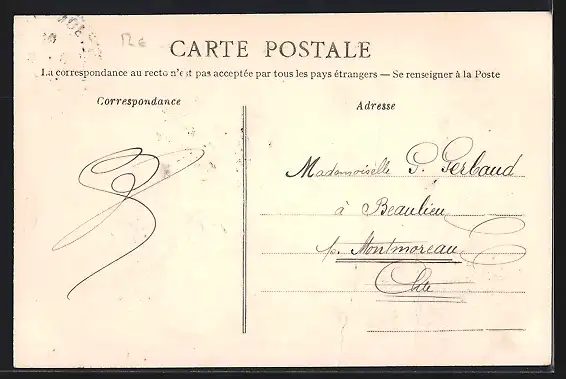 CARTE POSTALE
La correspondance au recto n'est pas acceptée par tous les pays étrangers — Se renseigner à la Poste
Correspondance
Adresse
Mademoiselle G. Gerbaud
à Beaulieu
p. Montmoreau
Chte